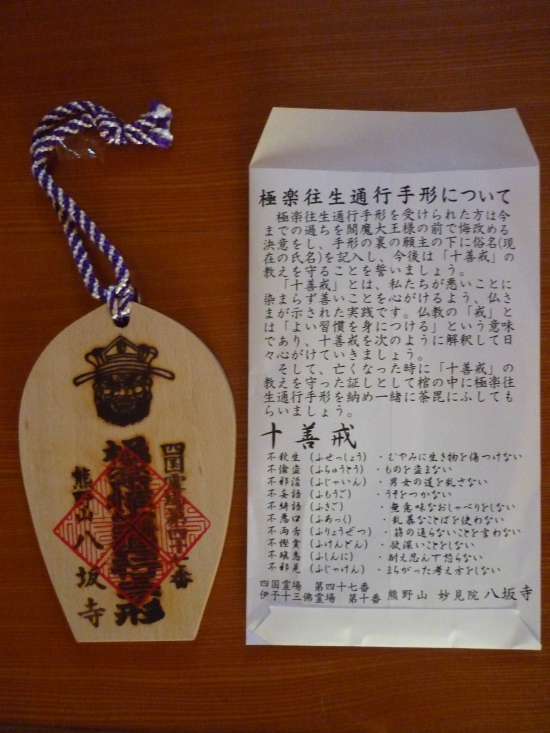 四国霊場第四十七番
極楽往生通行手形
熊野山八坂寺
極楽往生通行手形について
極楽往生通行手形を受けられた方は今
までの過ちを閻魔大王様の前で悔改める
決意をし、手形の裏の願主の下に俗名(現
在の氏名)を記入し、今後は「十善戒」の
教えを守ることを誓いましょう。
「十善戒」とは、私たちが悪いことに
染まらず善いことを心がけるよう、仏さ
まが示された実践です。仏教の「戒」と
は「よい習慣を身につける」という意味
であり、十善戒を次のように解釈して日
々心がけていきましょう。
そして、亡くなった時に「十善戒」の
教えを守った証しとして棺の中に極楽往
生通行手形を納め一緒に荼毘にふしても
らいましょう。
十善戒
不殺生(ふせっしょう)・むやみに生き物を傷つけない
不偸盗(ふちゅうとう)・ものを盗まない
不邪淫(ふじゃいん)・男女の道を乱さない
不妄語(ふもうご)・うそをつかない
不綺語(ふきご)・無意味なおしゃべりをしない
不悪口(ふあっく)・乱暴なことばを使わない
不両舌(ふりょうぜつ)・筋の通らないことを言わない
不慳貪(ふけんどん)・欲深いことをしない
不瞋恚(ふしんに)・耐え忍んで怒らない
不邪見(ふじゃけん)・まちがった考え方をしない
四国霊場 第四十七番
伊予十三佛霊場 第十番 熊野山 妙見院 八坂寺